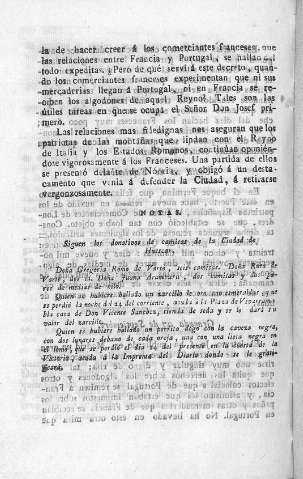 la de hacer creer á los comerciantes franceses, que
las relaciones entre Francia y Portugal, se hallan
todo expeditas. ¿Pero de qué servirá este decreto, quan-
do los comerciantes franceses experimentan que ni sus
mercaderías llegan á Portugal, ni en Francia se re-
ciben los algodones de aquel Reyno? Tales son las
útiles tareas en que se ocupa el Señor Don Josef pri-
mero.
Las relaciones mas fidedignas nos aseguran que los
patriotas de las montañas que lindan con el Reyno
de Italia y los Estados Romanos, continúan oponién-
dose vigorosamente á los Franceses. Una partida de ellos
se presentó delante de y obligó á un desta-
camento que venia á defender la Ciudad, á retirarse
vergonzosamente.
NOTAS.
Siguen los donativos de camisas de la Ciudad de
Doña Gregoria Romo de Varto, seis camisas. Doña Rosa de
Varto, dos
Quien hubiere hallado un narcillo de oro
se perdió la noche del 24 del corriente, acuda á la Plaza de
casa de Don Vicente Sanchez, tienda de seda y se le dará su
valor del narcillo.
Quien hubiere hallado un perrito dogo con la cabeza negra,
con dos lunares debaxo de cada oreja, una con una lista negra en
el lomo, que se perdió el dia 24 del presente en la acera de la
Victoria, acuda á la Imprenta del Diario donde se le grati-
ficará.